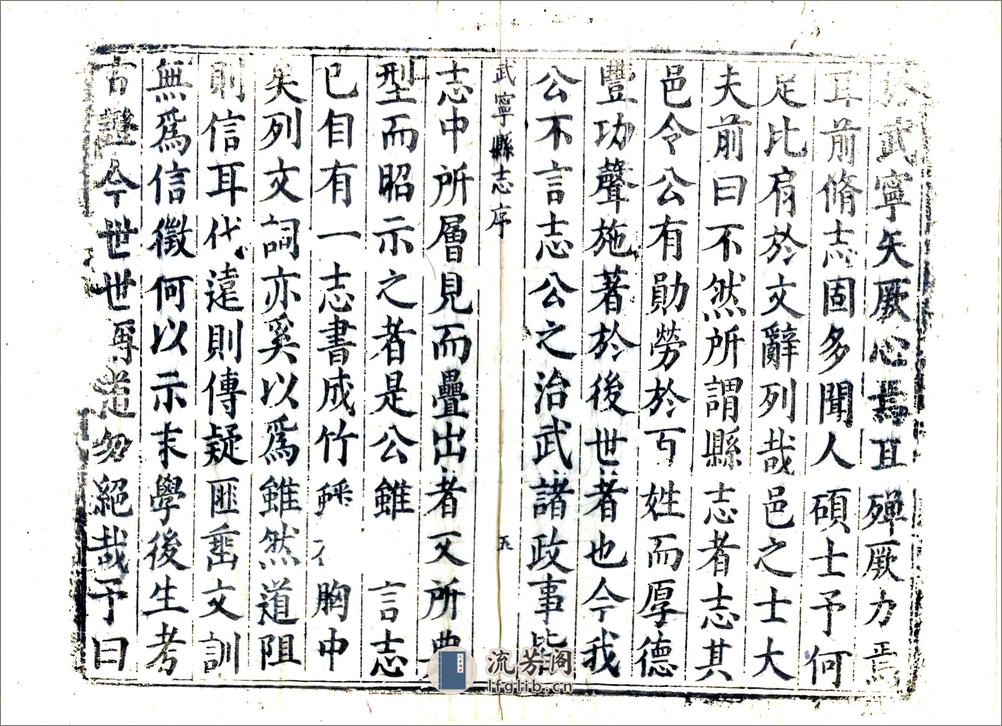 武寧矣厥心殫厥力焉
耳前脩志固多聞人碩士予何
足比肩於文辭列哉邑之士大
夫前曰不然所謂縣志者志其
邑令公有勛勞於百姓而厚德
豐功聲施著於後世者也今我
公不言志公之治武諸政事皆
武寧縣志序
五
志中所層見而疊出者又所典
型而昭示之者是公雖言志
已自有一志書成竹胸中
矣列文詞亦奚以為雖然道阻
則信耳代遠則傳疑匪垂文訓
無為信徵何以示末學後生考
古證今世世毋絕哉予曰
流芳阁
lfglib.cn